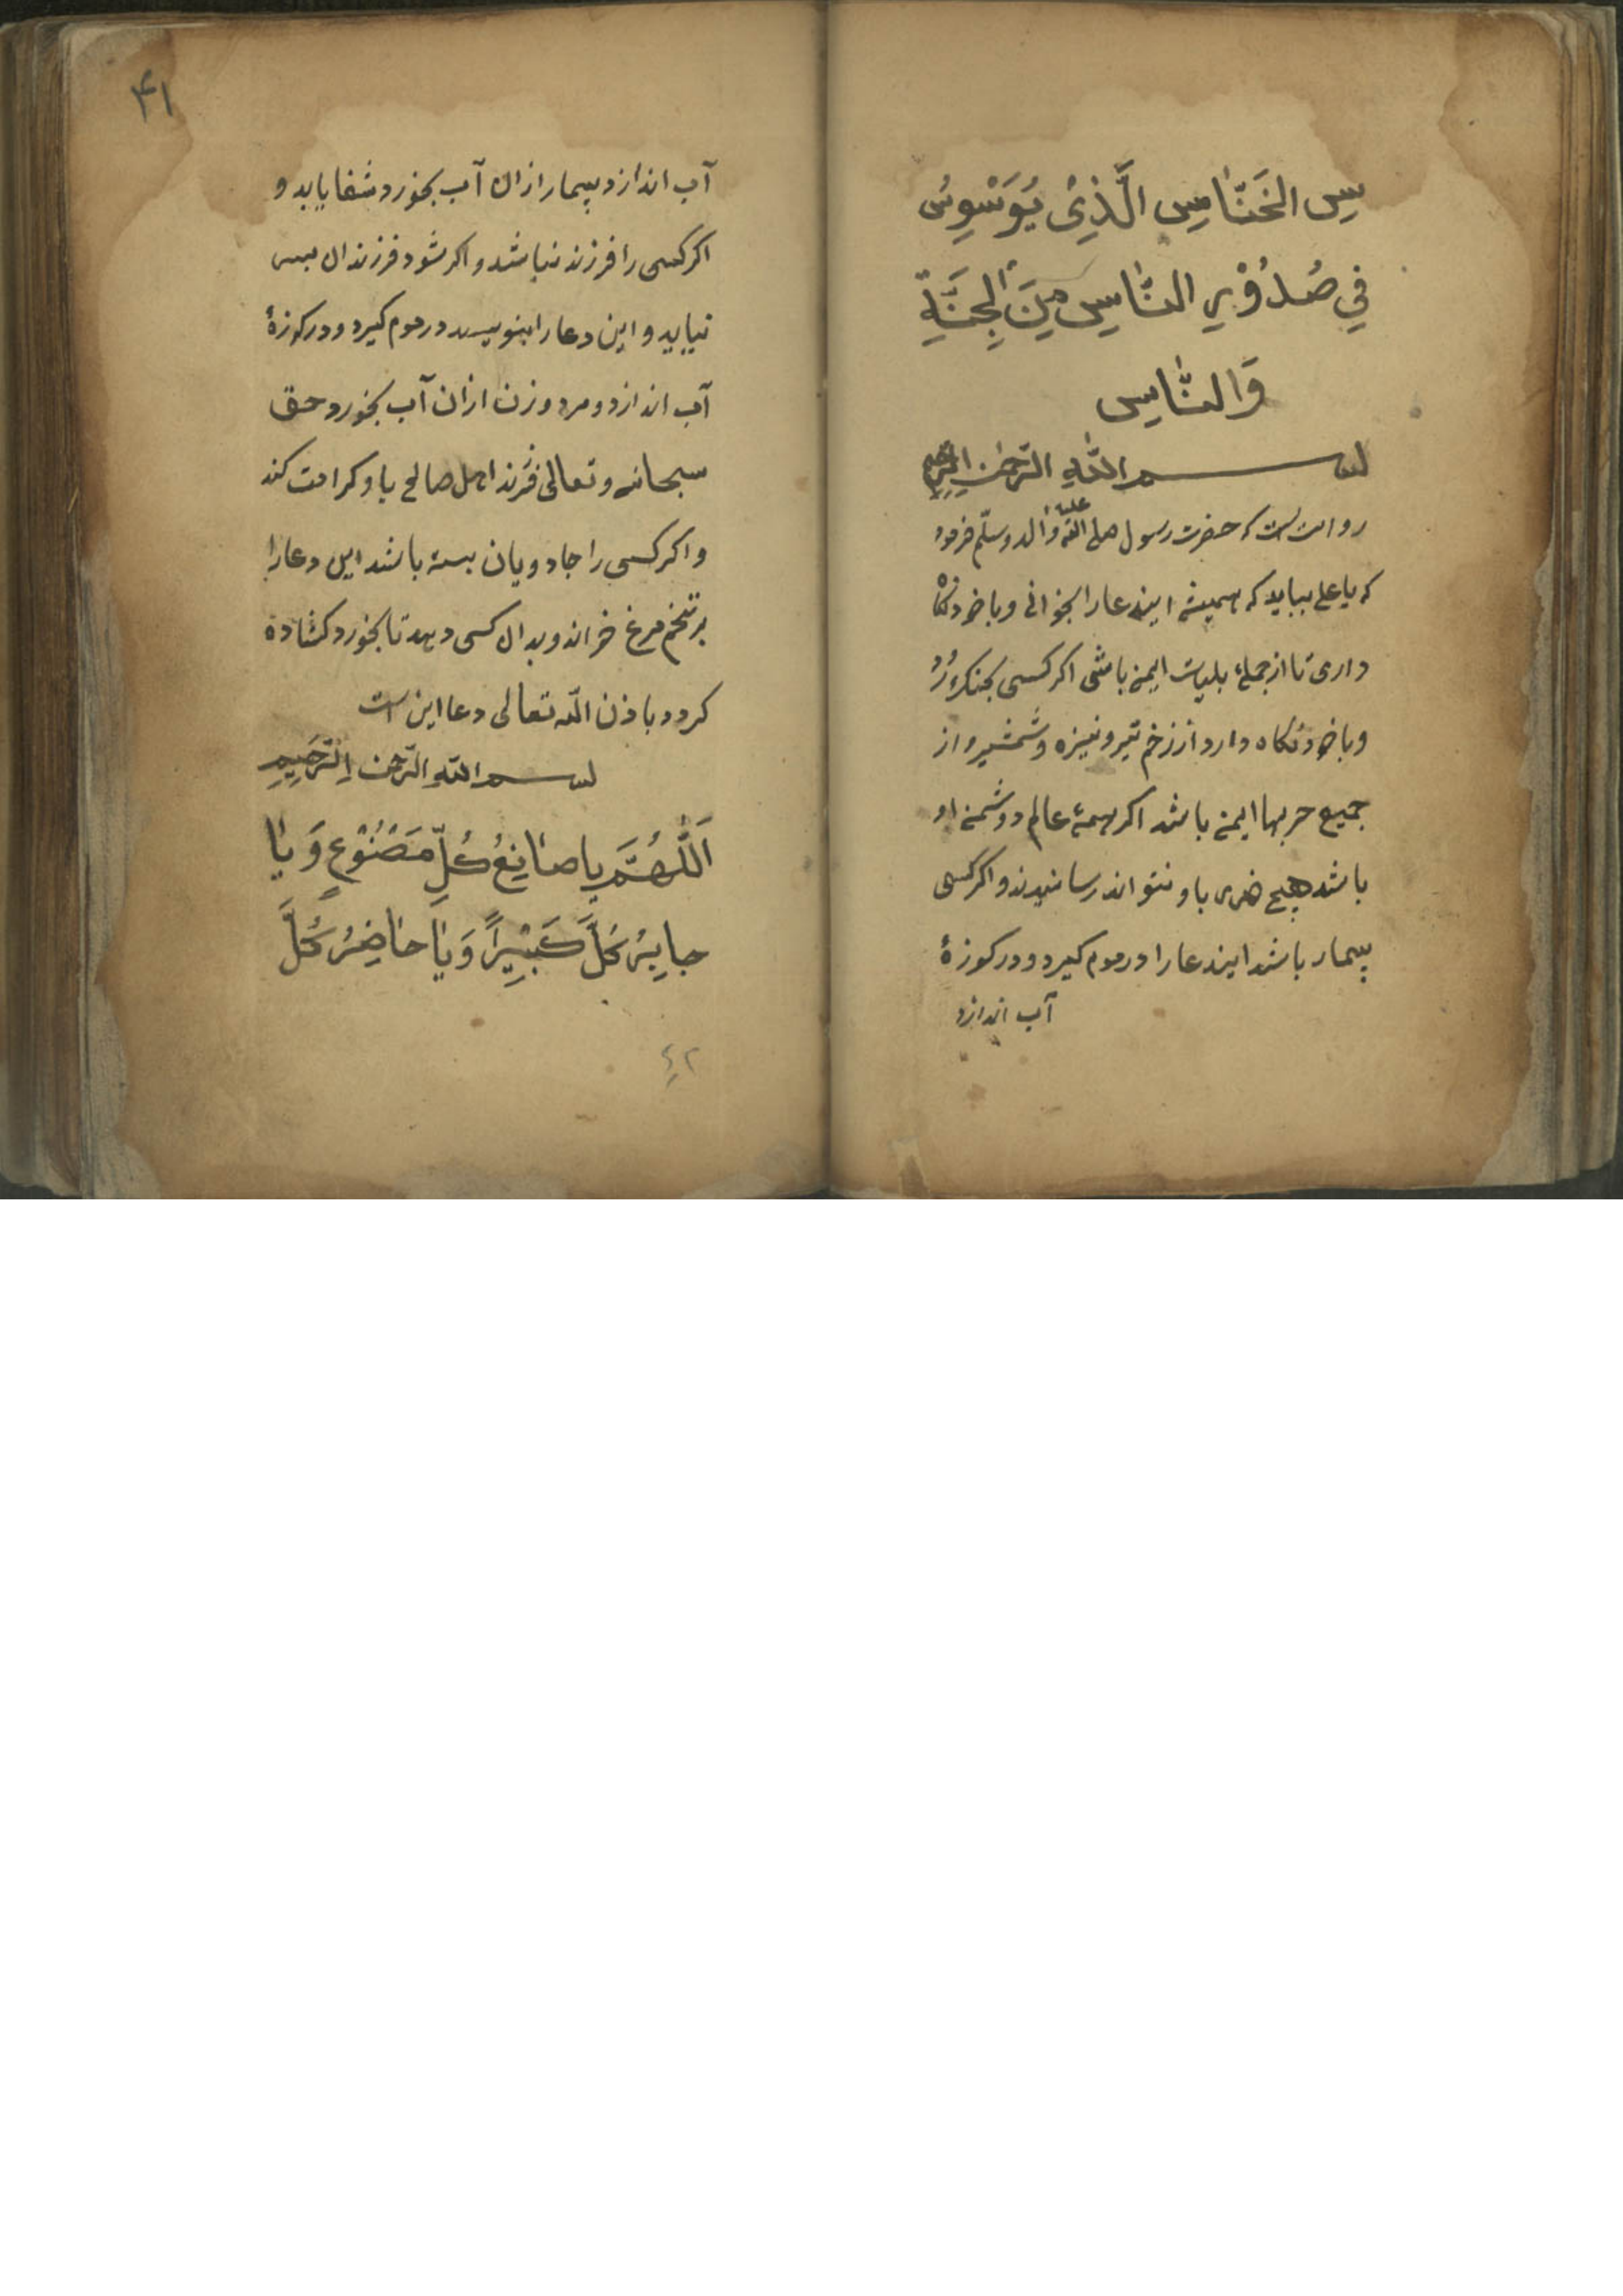 سِ الخَنّٰاسِ الَّذِیْ یُوَسْوِسُ
فِي صُدُوْرِ النّٰاسِ مِنَ الْجِنَّةِ
وَالنّٰاسِ
بسم اللّٰهِ الرَّحمٰنِ الرَّحِيمِ
روایت است که حضرت رسول صلی اللّه علیه وآله وسلّم فرمود
که یا علی بباید که همیشه ایندعا را بخوانی و با خود نگاه
داری تا از جملۀ بلیات ایمن باشی اکر کسی بجنک رود
و با خود نکاه دارد از زخم تیر و نیزه و شمشیر و از
جمیع حربها ایمن باشد اکر همۀ عالم دوشمن او
باشد هیچ ضرری باو نتواند رسانیدند و اکر کسی
بیمار باشد ایندعا را در موم کیرد و در کوزۀ
آب اندازد
۴۱
آب اندازد بیمار ازان آب بخورد شفا یابد و
اکر کسی را فرزند نباشد و اکر شود فرزندان بس
نیاید و این دعا را بنویسد در موم کیرد و در کوزۀ
آب اندازد و مرد و زن ازان آب بخورد حق
سبحانه و تعالی فرزند اهل صالح باو کرامت کند
و اکر کسی را جادویان بسته باشد این دعا را
بر تخم مرغ خواند و بدان کسی دهد تا بخورد کشاده
کردد باذن اللّه تعالی دعا این است
بسم اللّهِ الرَّحمن الرَّحِيمِ
اَللّٰهُمَّ یا صٰانِعُ كُلِّ مَصْنُوْعٍ وَیٰا
جابِرُ كُلَّ كَبْيِراً وَیٰا حٰاضِرُ كُلَّ
٤٢